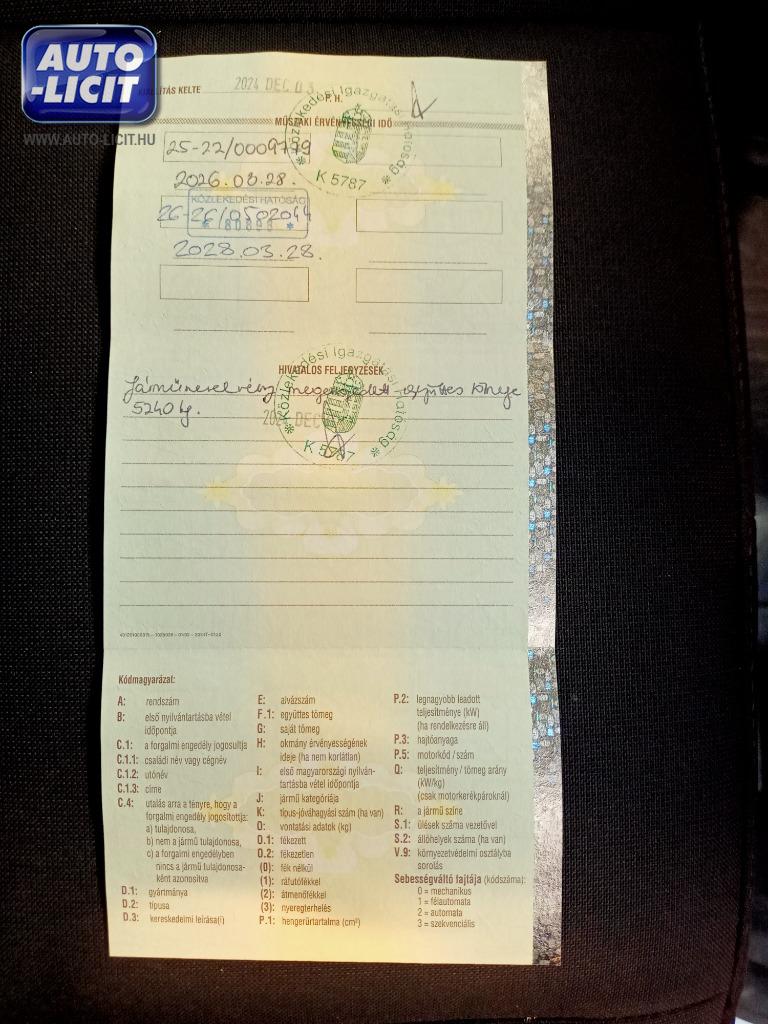 AUTO
-LICIT
WWW.AUTO-LICIT.HU
KIÁLLÍTÁS KELTE
2024 DEC 03
P. H.
MŰSZAKI ÉRVÉNYESSÉGI IDŐ
Közlekedési Igazgatási Hatóság
K 5787
25-22/0009779
2026.03.28.
KÖZLEKEDÉSI HATÓSÁG
26-26/0502044
2028.03.28.
HIVATALOS FELJEGYZÉSEK
Közlekedési Igazgatási Hatóság
K 5787
Járműszerelvény megengedett együttes tömege
5240 kg.
DEC
Kódmagyarázat:
A: rendszám
B: első nyilvántartásba vétel
időpontja
C.1: a forgalmi engedély jogosultja
C.1.1: családi név vagy cégnév
C.1.2: utónév
C.1.3: címe
C.4: utalás arra a tényre, hogy a
forgalmi engedély jogosítottja:
a) tulajdonosa,
b) nem a jármű tulajdonosa,
c) a forgalmi engedélyben
nincs a jármű tulajdonosa-
ként azonosítva
D.1: gyártmánya
D.2: típusa
D.3: kereskedelmi leírása(i)
E: alvázszám
F.1: együttes tömeg
G: saját tömeg
H: okmány érvényességének
ideje (ha nem korlátlan)
I: első magyarországi nyilván-
tartásba vétel időpontja
J: jármű kategóriája
K: típus-jóváhagyási szám (ha van)
O: vontatási adatok (kg)
O.1: fékezett
O.2: fékezetlen
(0): fék nélkül
(1): ráfutófékkel
(2): átmenőfékkel
(3): nyeregterhelés
P.1: hengerűrtartalma (cm³)
P.2: legnagyobb leadott
teljesítménye (kW)
(ha rendelkezésre áll)
P.3: hajtóanyaga
P.5: motorkód / szám
Q: teljesítmény / tömeg arány
(kW/kg)
(csak motorkerékpároknál)
R: a jármű színe
S.1: ülések száma vezetővel
S.2: állóhelyek száma (ha van)
V.9: környezetvédelmi osztályba
sorolás
Sebességváltó fajtája (kódszáma):
0 = mechanikus
1 = félautomata
2 = automata
3 = szekvenciális